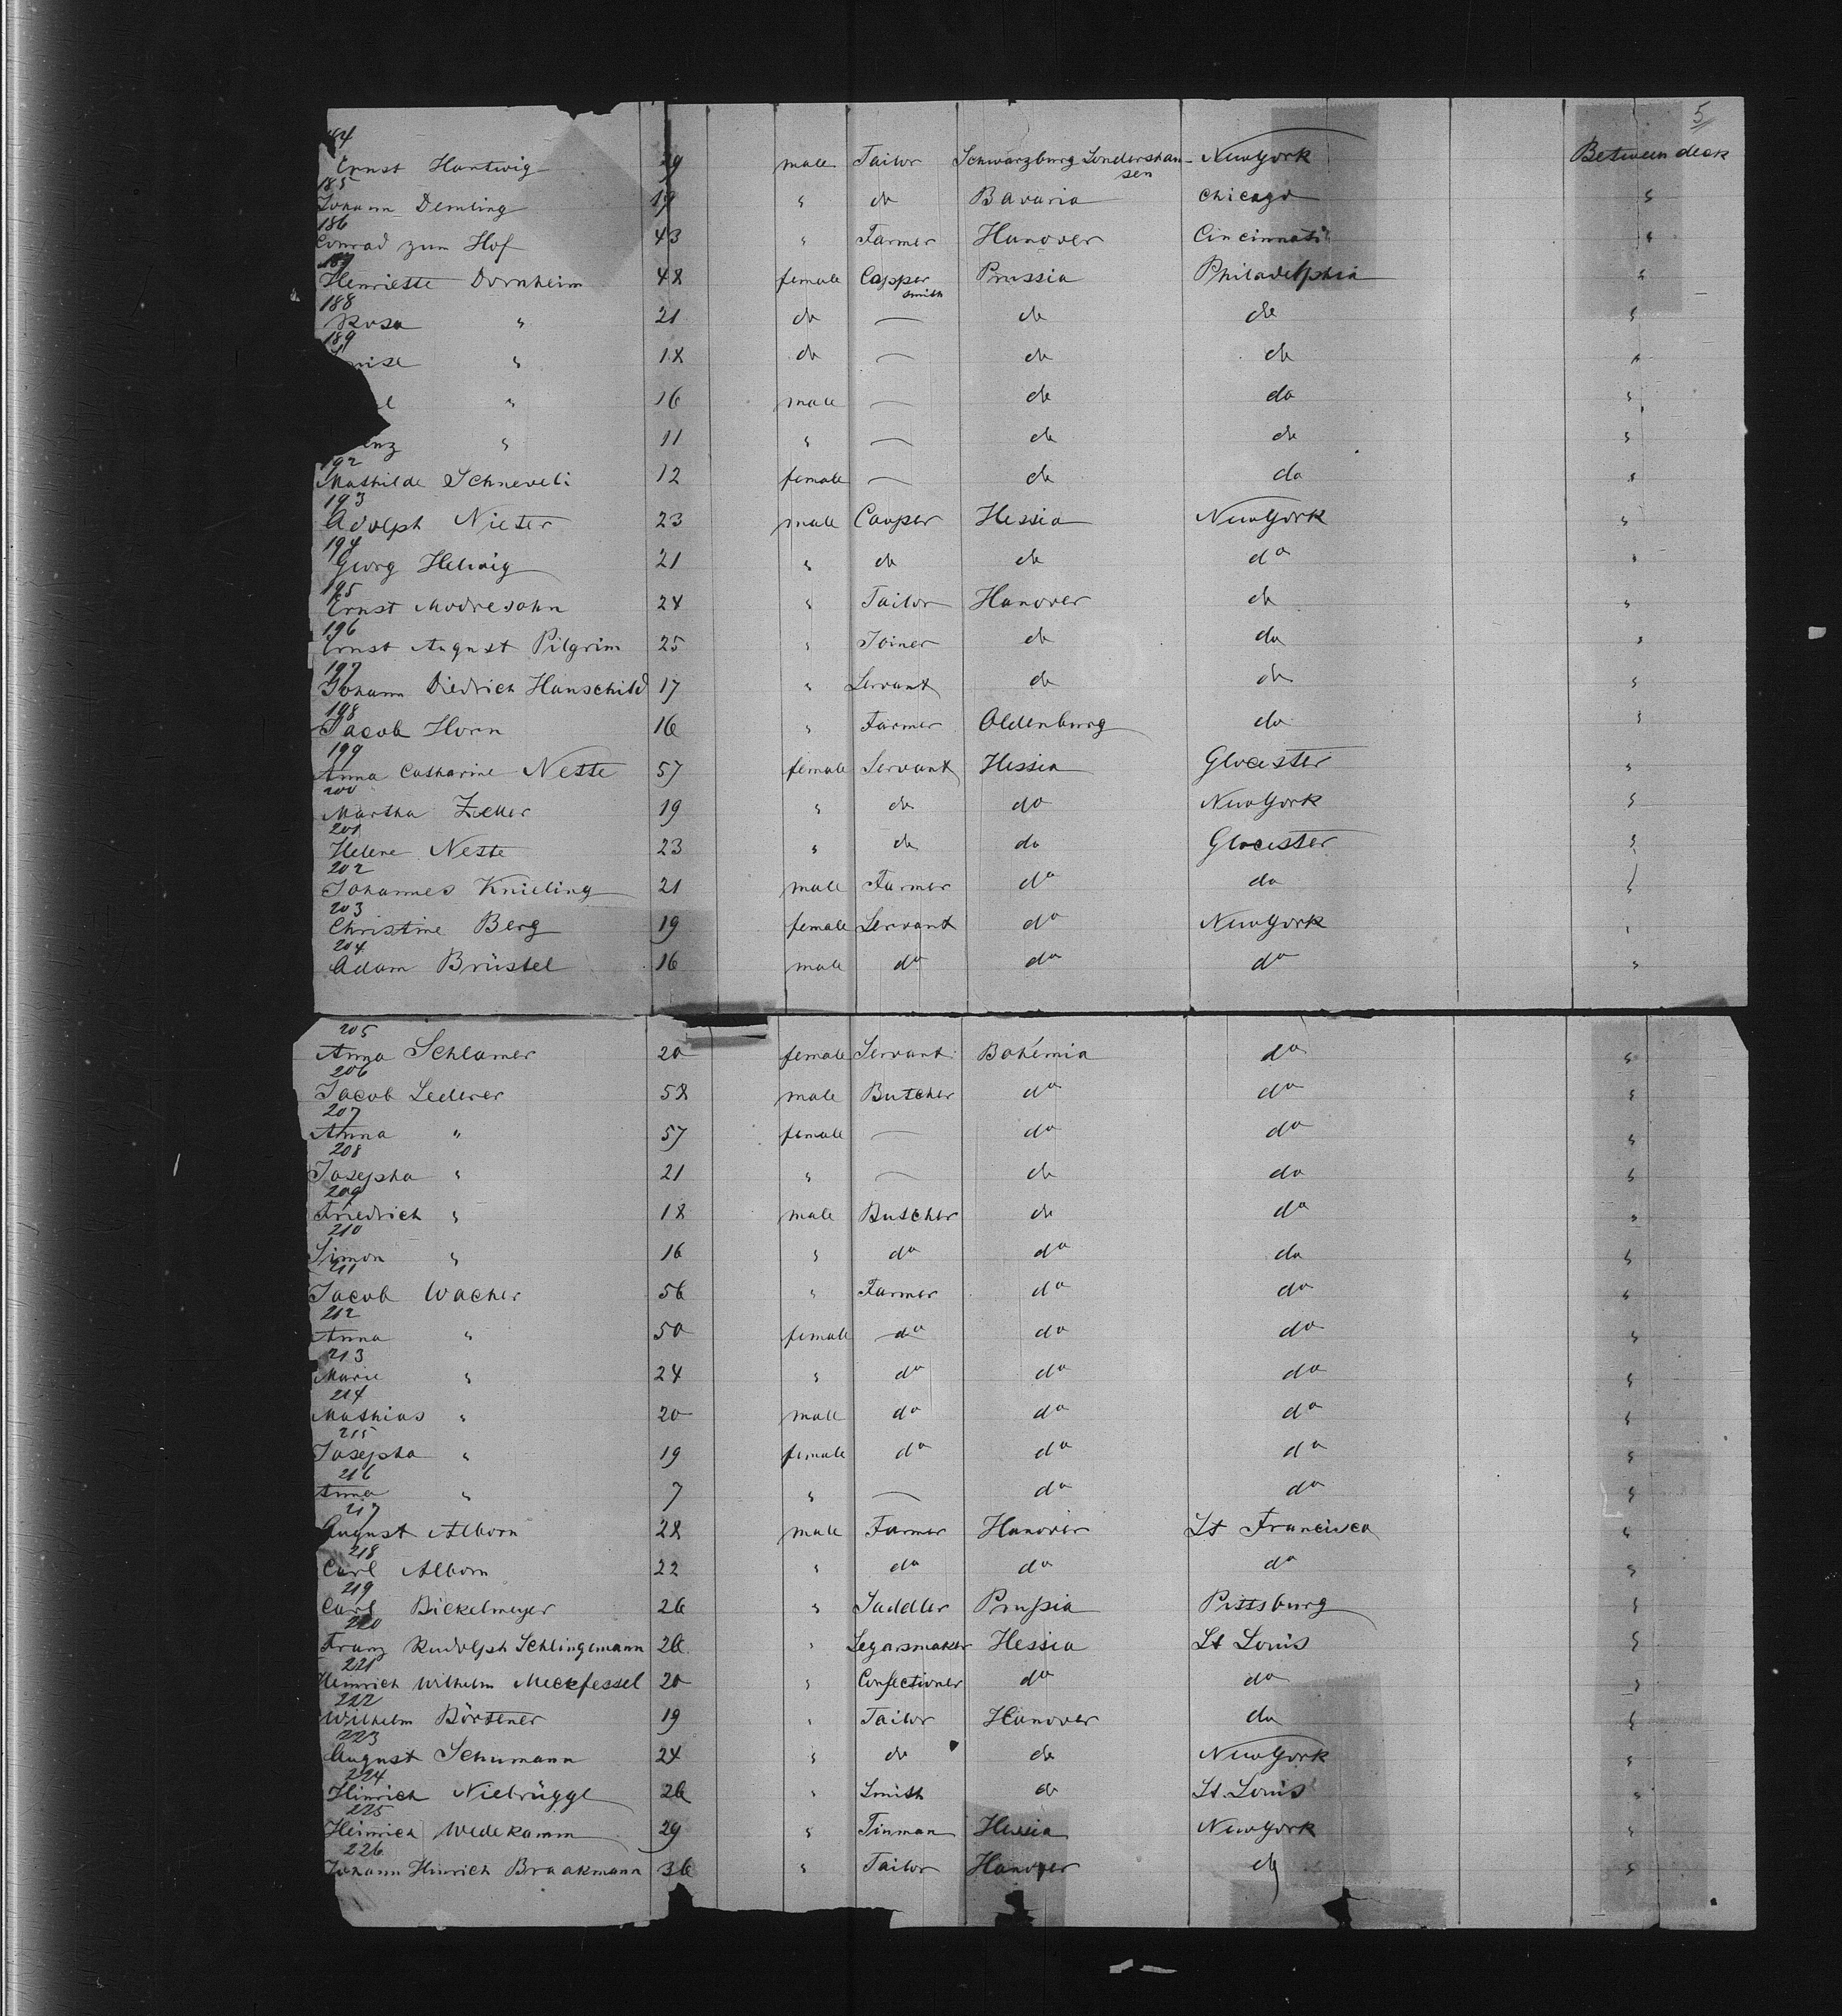 5
184
Ernst Hartwig 29 male Tailor Schwarzburg Sondershau- New York Between deck
sen
185
Johann Demling 19 " do Bavaria Chicago "
186
Conrad zum Hof 43 " Farmer Hanover Cincinnati "
187
Henriette Dornheim 48 female Copper Prussia Philadelphia "
smith
188
Rosa " 21 do — do do "
189
" 18 do — do do "
" 16 male — do do "
" 11 " — do do "
192
Mathilde Schneveli 12 female — do do "
193
Adolph Nieter 23 male Cooper Hessia New York "
194
Georg Helwig 21 " do do do "
195
Ernst Modresohn 24 " Tailor Hanover do "
196
Ernst August Pilgrim 25 " Joiner do do "
197
Johann Diedrich Hanschild 17 " Servant do do "
198
Jacob Horn 16 " Farmer Oldenburg do "
199
Anna Catharine Neste 57 female Servant Hessia Glocester "
200
Martha Zeller 19 " do do New York "
201
Helene Neste 23 " do do Glocester "
202
Johannes Knieling 21 male Farmer do do "
203
Christine Berg 19 female Servant do New York "
204
Adam Brüstel 16 male do do do "
205
Anna Schlamer 20 female Servant Bohemia do "
206
Jacob Lederer 58 male Butcher do do "
207
Anna " 57 female — do do "
208
Josepha " 21 " — do do "
209
Friedrich " 18 male Butcher do do "
210
Simon " 16 " do do do "
211
Jacob Wacher 56 " Farmer do do "
212
Anna " 50 female do do do "
213
Marie " 24 " do do do "
214
Mathias " 20 male do do do "
215
Josepha " 19 female do do do "
216
Anna " 7 " — do do "
217
August Alborn 28 male Farmer Hanover St Francisco "
218
Carl Alborn 22 " do do do "
219
Carl Bickelmeyer 26 " Saddler Prussia Pittsburg "
220
Franz Rudolph Schlingemann 26 " Segarsmaker Hessia St Louis "
221
Heinrich Wilhelm Meckfessel 20 " Confectioner do do "
222
Wilhelm Börtener 19 " Tailor Hanover do "
223
August Schumann 24 " do do New York "
224
Hinrich Niebrügge 26 " Smith do St. Louis "
225
Heinrich Wedekamm 29 " Tinman Hessia New York "
226
Johann Hinrich Braakmann 36 " Tailor Hanover do "